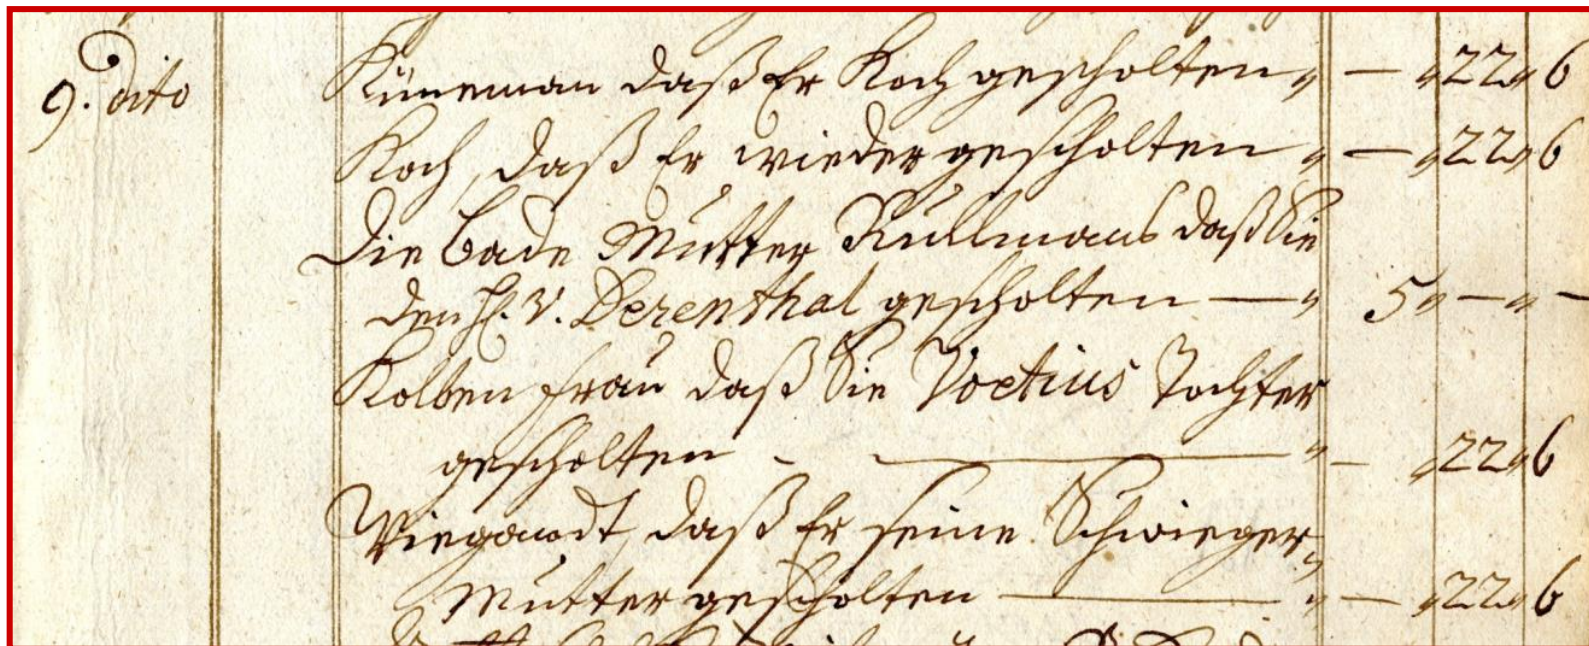 9. dito Küneman daß Er Koch gescholten „ — „ 22 „ 6
Koch, daß Er wieder gescholten „ — „ 22 „ 6
Die Bade Mutter Kullmans daß Sie
den H. V. Derenthal gescholten — „ 5 „ — „ —
Kolben frau daß Sie Voetius Tochter
gescholten - — „ — „ 22 „ 6
Wiegandt, daß Er seine Schwieger„
Mutter gescholten — „ — „ 22 „ 6